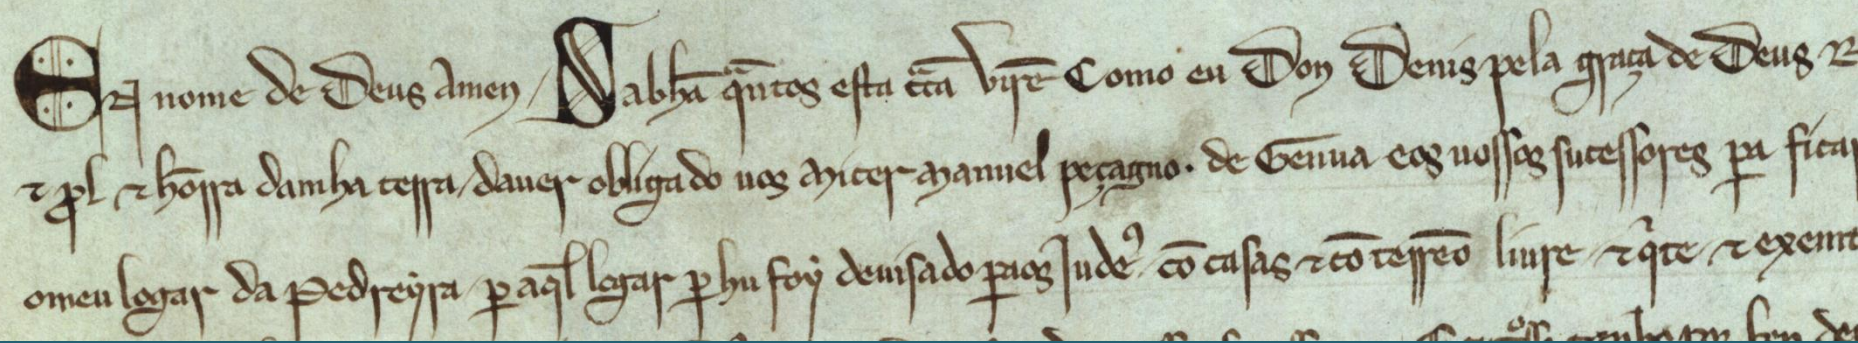 En nome de Deus Amen / Sabhā q̄ntos esta c̄ta virē Como eu Don Denis pela graça de Deus R
⁊ p̄l ⁊ hōrra damha terra / daver obligado uos Micer Manuel peçagno . de Gēnua eos uossos sucessores pa ficar
omeu logar da Pedreyra / per aq̄l logar per hu foy deuisado paos Jude⁹ cō casas ⁊ cō terrēo liure ⁊ qite ⁊ exente